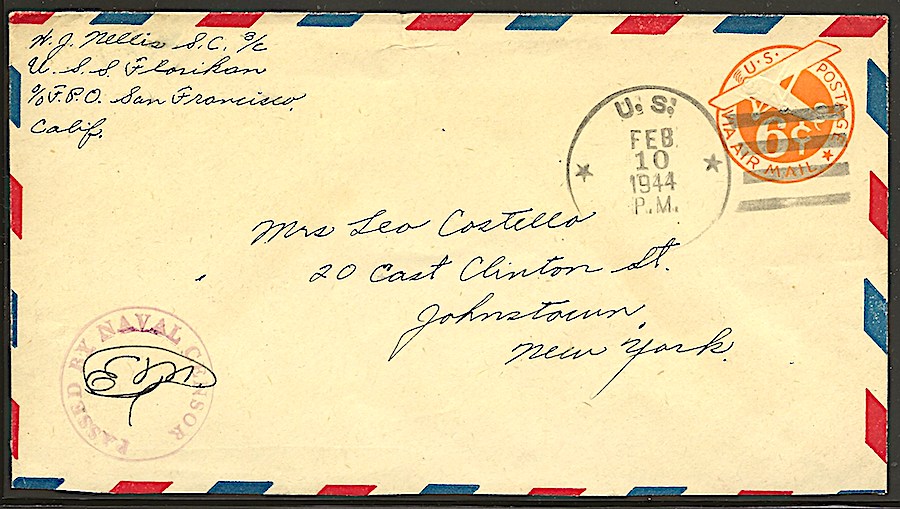 W. J. Nellis S.C. 3/c
U. S. S. Florikan
c/o F.P.O. San Francisco,
Calif.
U.S. POSTAGE
6¢
VIA AIR MAIL
U. S.
FEB
10
1944
P.M.
Mrs Leo Costello
20 East Clinton St.
Johnstown,
New York.
PASSED BY NAVAL CENSOR